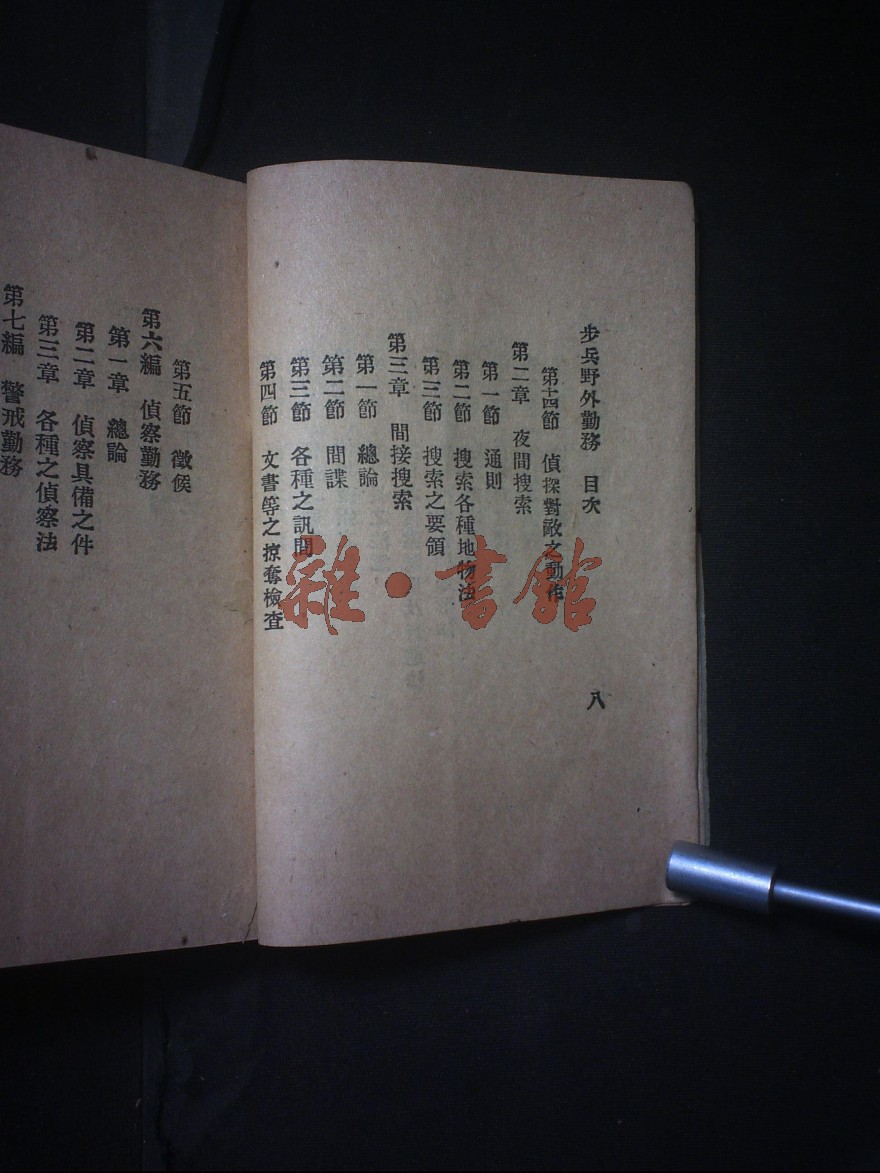 步兵野外勤務 目次
八
第十四節 偵探對敵之動作
第二章 夜間搜索
第一節 通則
第二節 搜索各種地物法
第三節 搜索之要領
第三章 間接搜索
第一節 總論
第二節 間諜
第三節 各種之訊問
第四節 文書等之掠奪檢査
第五節 徵候
第六編 偵察勤務
第一章 總論
第二章 偵察具備之件
第三章 各種之偵察法
第七編 警戒勤務
雜·書館